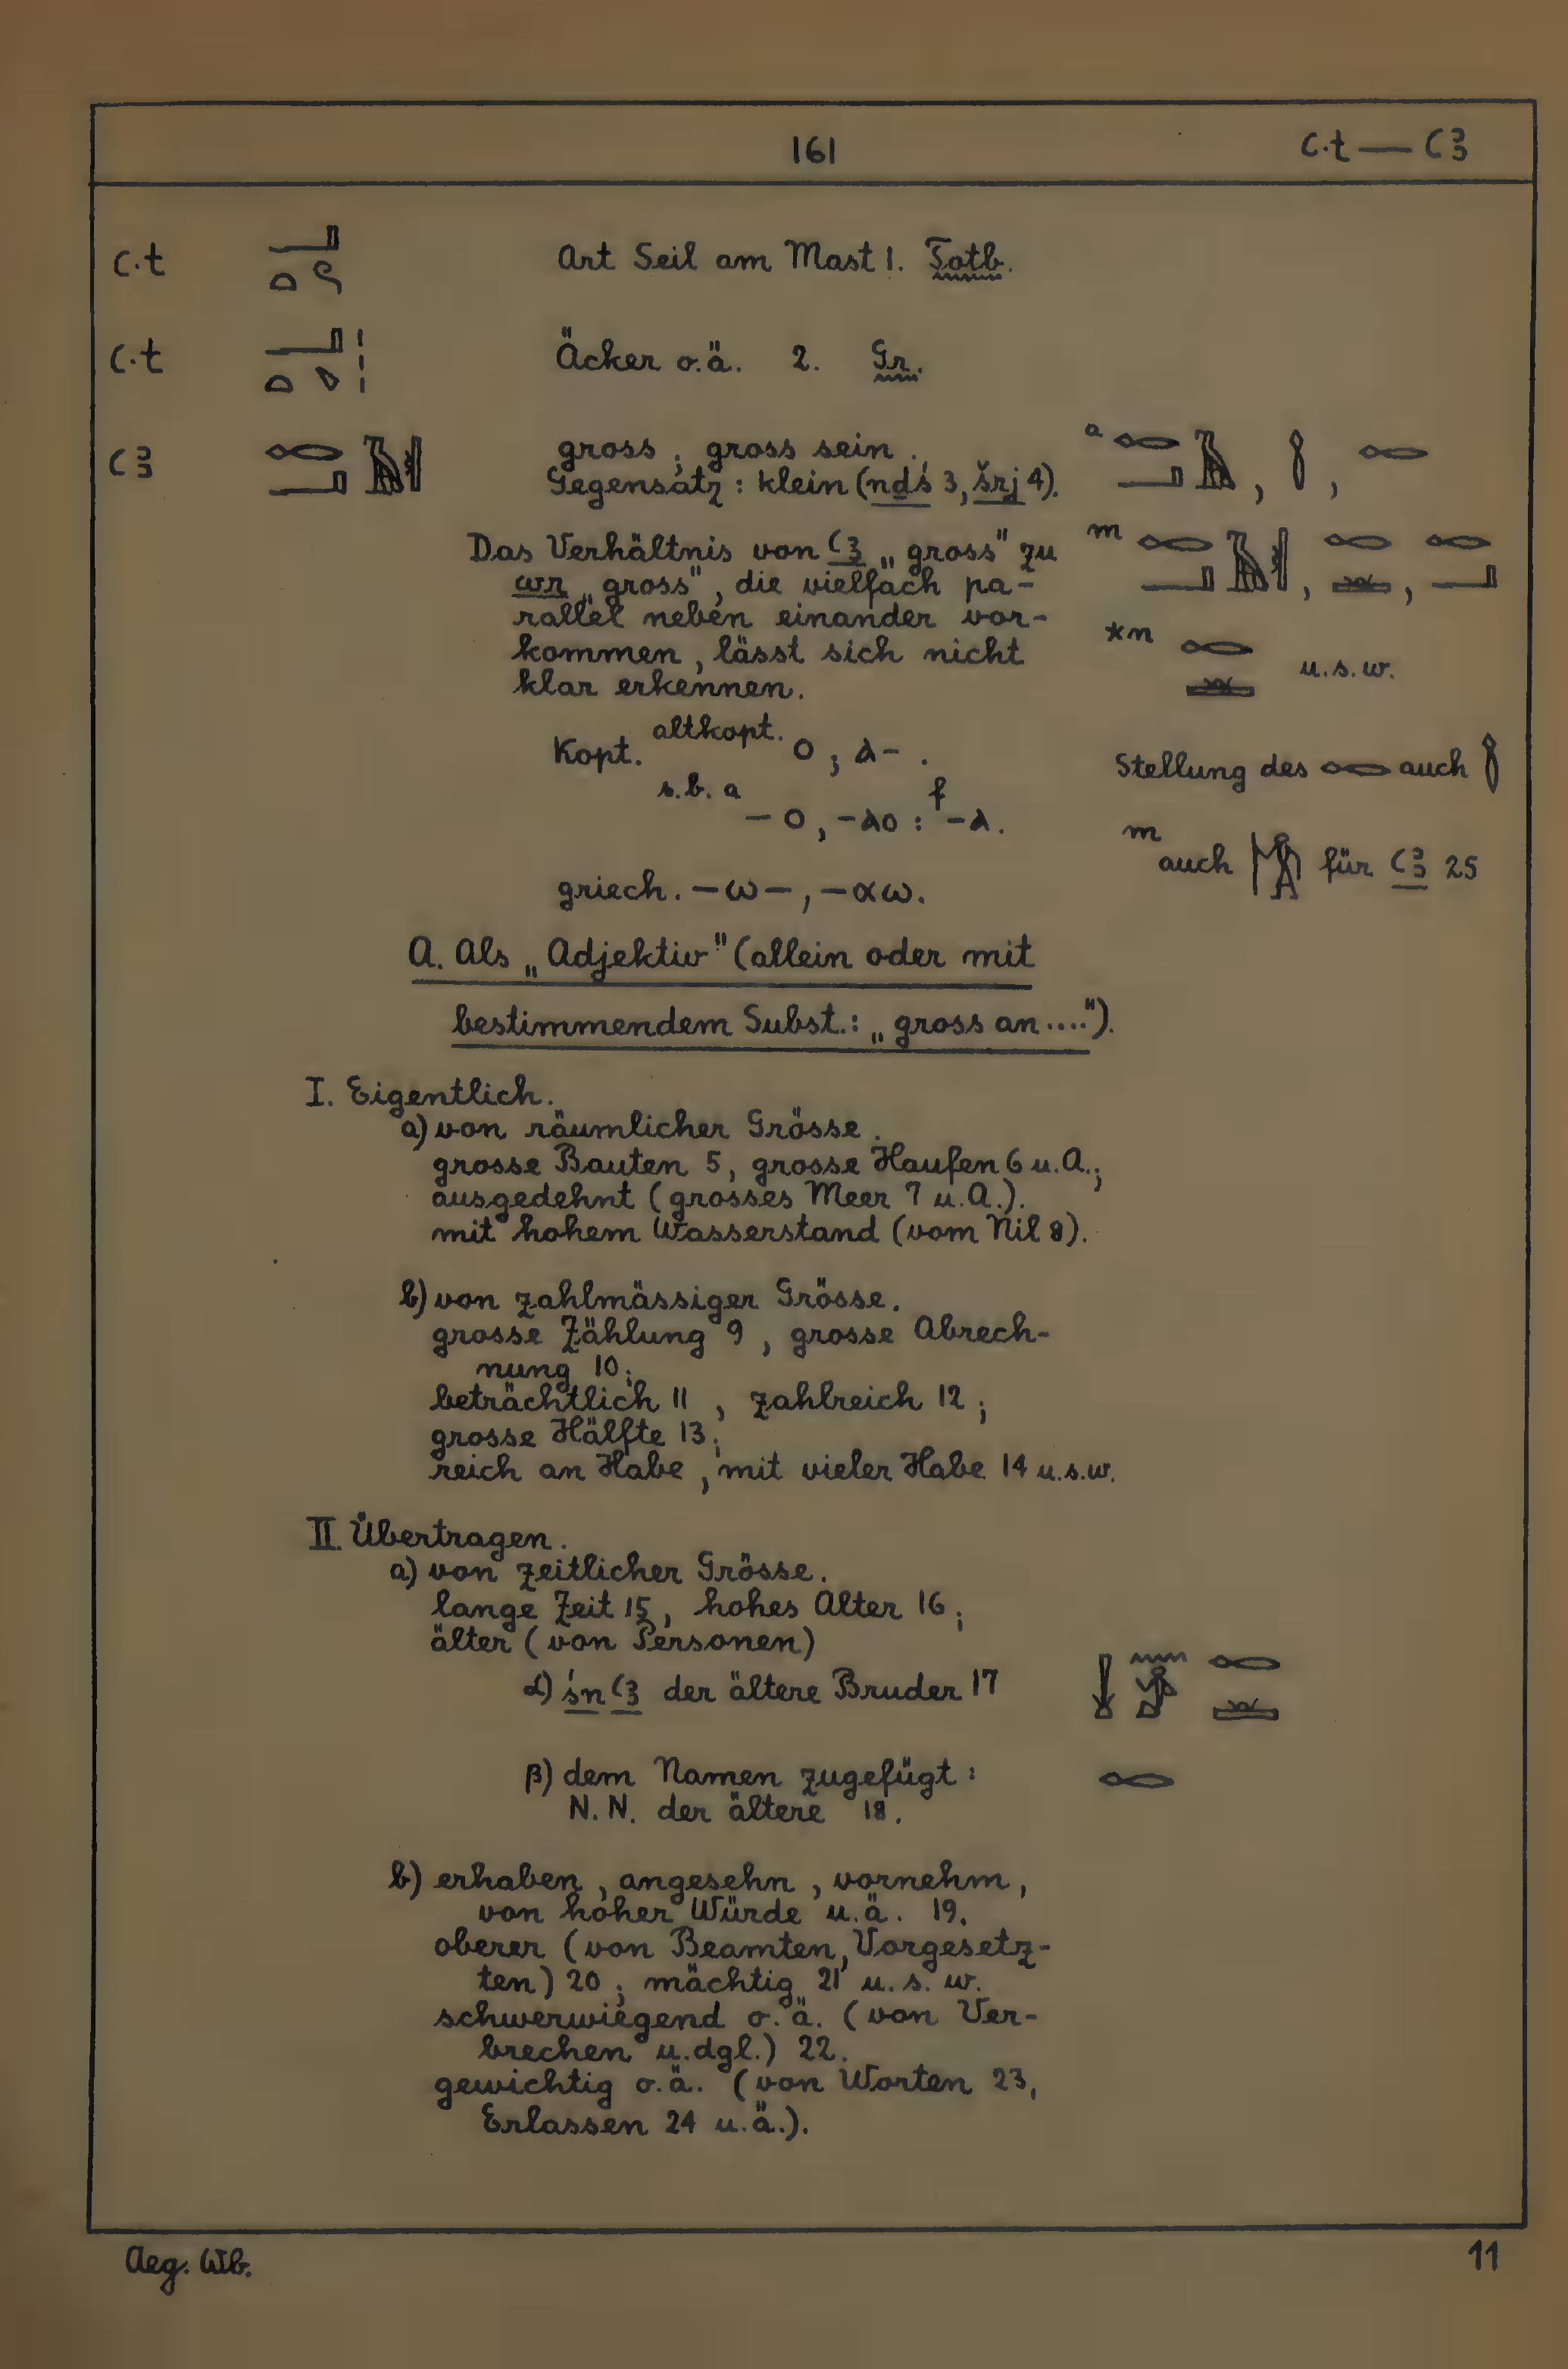 161 ꜥ·t — ꜥꜣ
ꜥ·t Art Seil am Mast 1. Totb.
ꜥ·t Äcker o.ä. 2. Gr.
ꜥꜣ 𓉻 gross ; gross sein .
Gegensatz : klein (nḏś 3, šrj 4).
Das Verhältnis von ꜥꜣ „gross" zu
wr „gross", die vielfach pa-
rallel neben einander vor-
kommen, lässt sich nicht
klar erkennen.
Kopt. altkopt. ⲟ ; ⲁ- .
s.b.a -ⲟ, -ⲁⲟ : f -ⲁ.
griech. -ω-, -αω.
a 𓉻 , ,
m 𓉻 , ,
*m u.s.w.
Stellung des 𓉻 auch
m auch für ꜥꜣ 25
A. Als „Adjektiv" (allein oder mit
bestimmendem Subst.: „gross an ....").
I. Eigentlich.
a) von räumlicher Grösse.
grosse Bauten 5, grosse Haufen 6 u.A.;
ausgedehnt (grosses Meer 7 u.A.).
mit hohem Wasserstand (vom Nil 8).
b) von zahlmässiger Grösse.
grosse Zählung 9, grosse Abrech-
nung 10;
beträchtlich 11, zahlreich 12;
grosse Hälfte 13;
reich an Habe, mit vieler Habe 14 u.s.w.
II. Übertragen.
a) von zeitlicher Grösse.
lange Zeit 15, hohes Alter 16;
älter (von Personen)
α) śn ꜥꜣ der ältere Bruder 17
β) dem Namen zugefügt: 𓉻
N. N. der ältere 18.
b) erhaben, angesehn, vornehm,
von hoher Würde u.ä. 19.
oberer (von Beamten, Vorgesetz-
ten) 20; mächtig 21 u.s.w.
schwerwiegend o.ä. (von Ver-
brechen u.dgl.) 22.
gewichtig o.ä. (von Worten 23,
Erlassen 24 u.ä.).
Aeg. Wb. 11